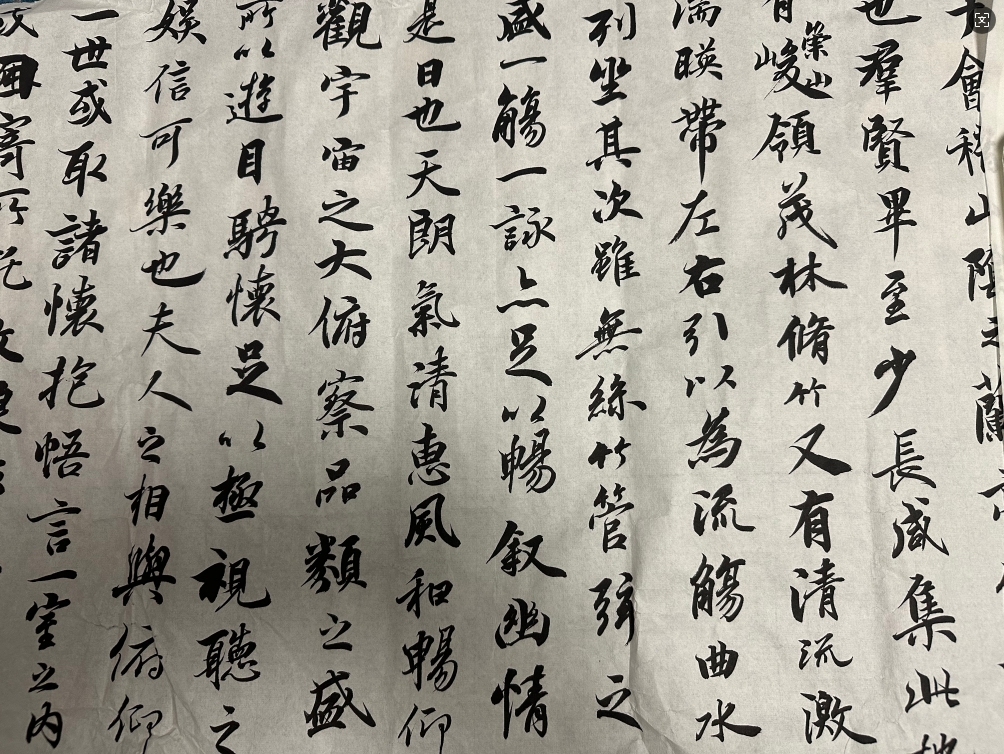 會稽山陰之蘭
也羣賢畢至少長咸集此地
有崇山峻領茂林脩竹又有清流激
湍暎帶左右引以為流觴曲水
列坐其次雖無絲竹管弦之
盛一觴一詠亦足以暢叙幽情
是日也天朗氣清惠風和暢仰
觀宇宙之大俯察品類之盛
所以遊目騁懷足以極視聽之
娛信可樂也夫人之相與俯仰
一世或取諸懷抱悟言一室之內
或因寄所託放